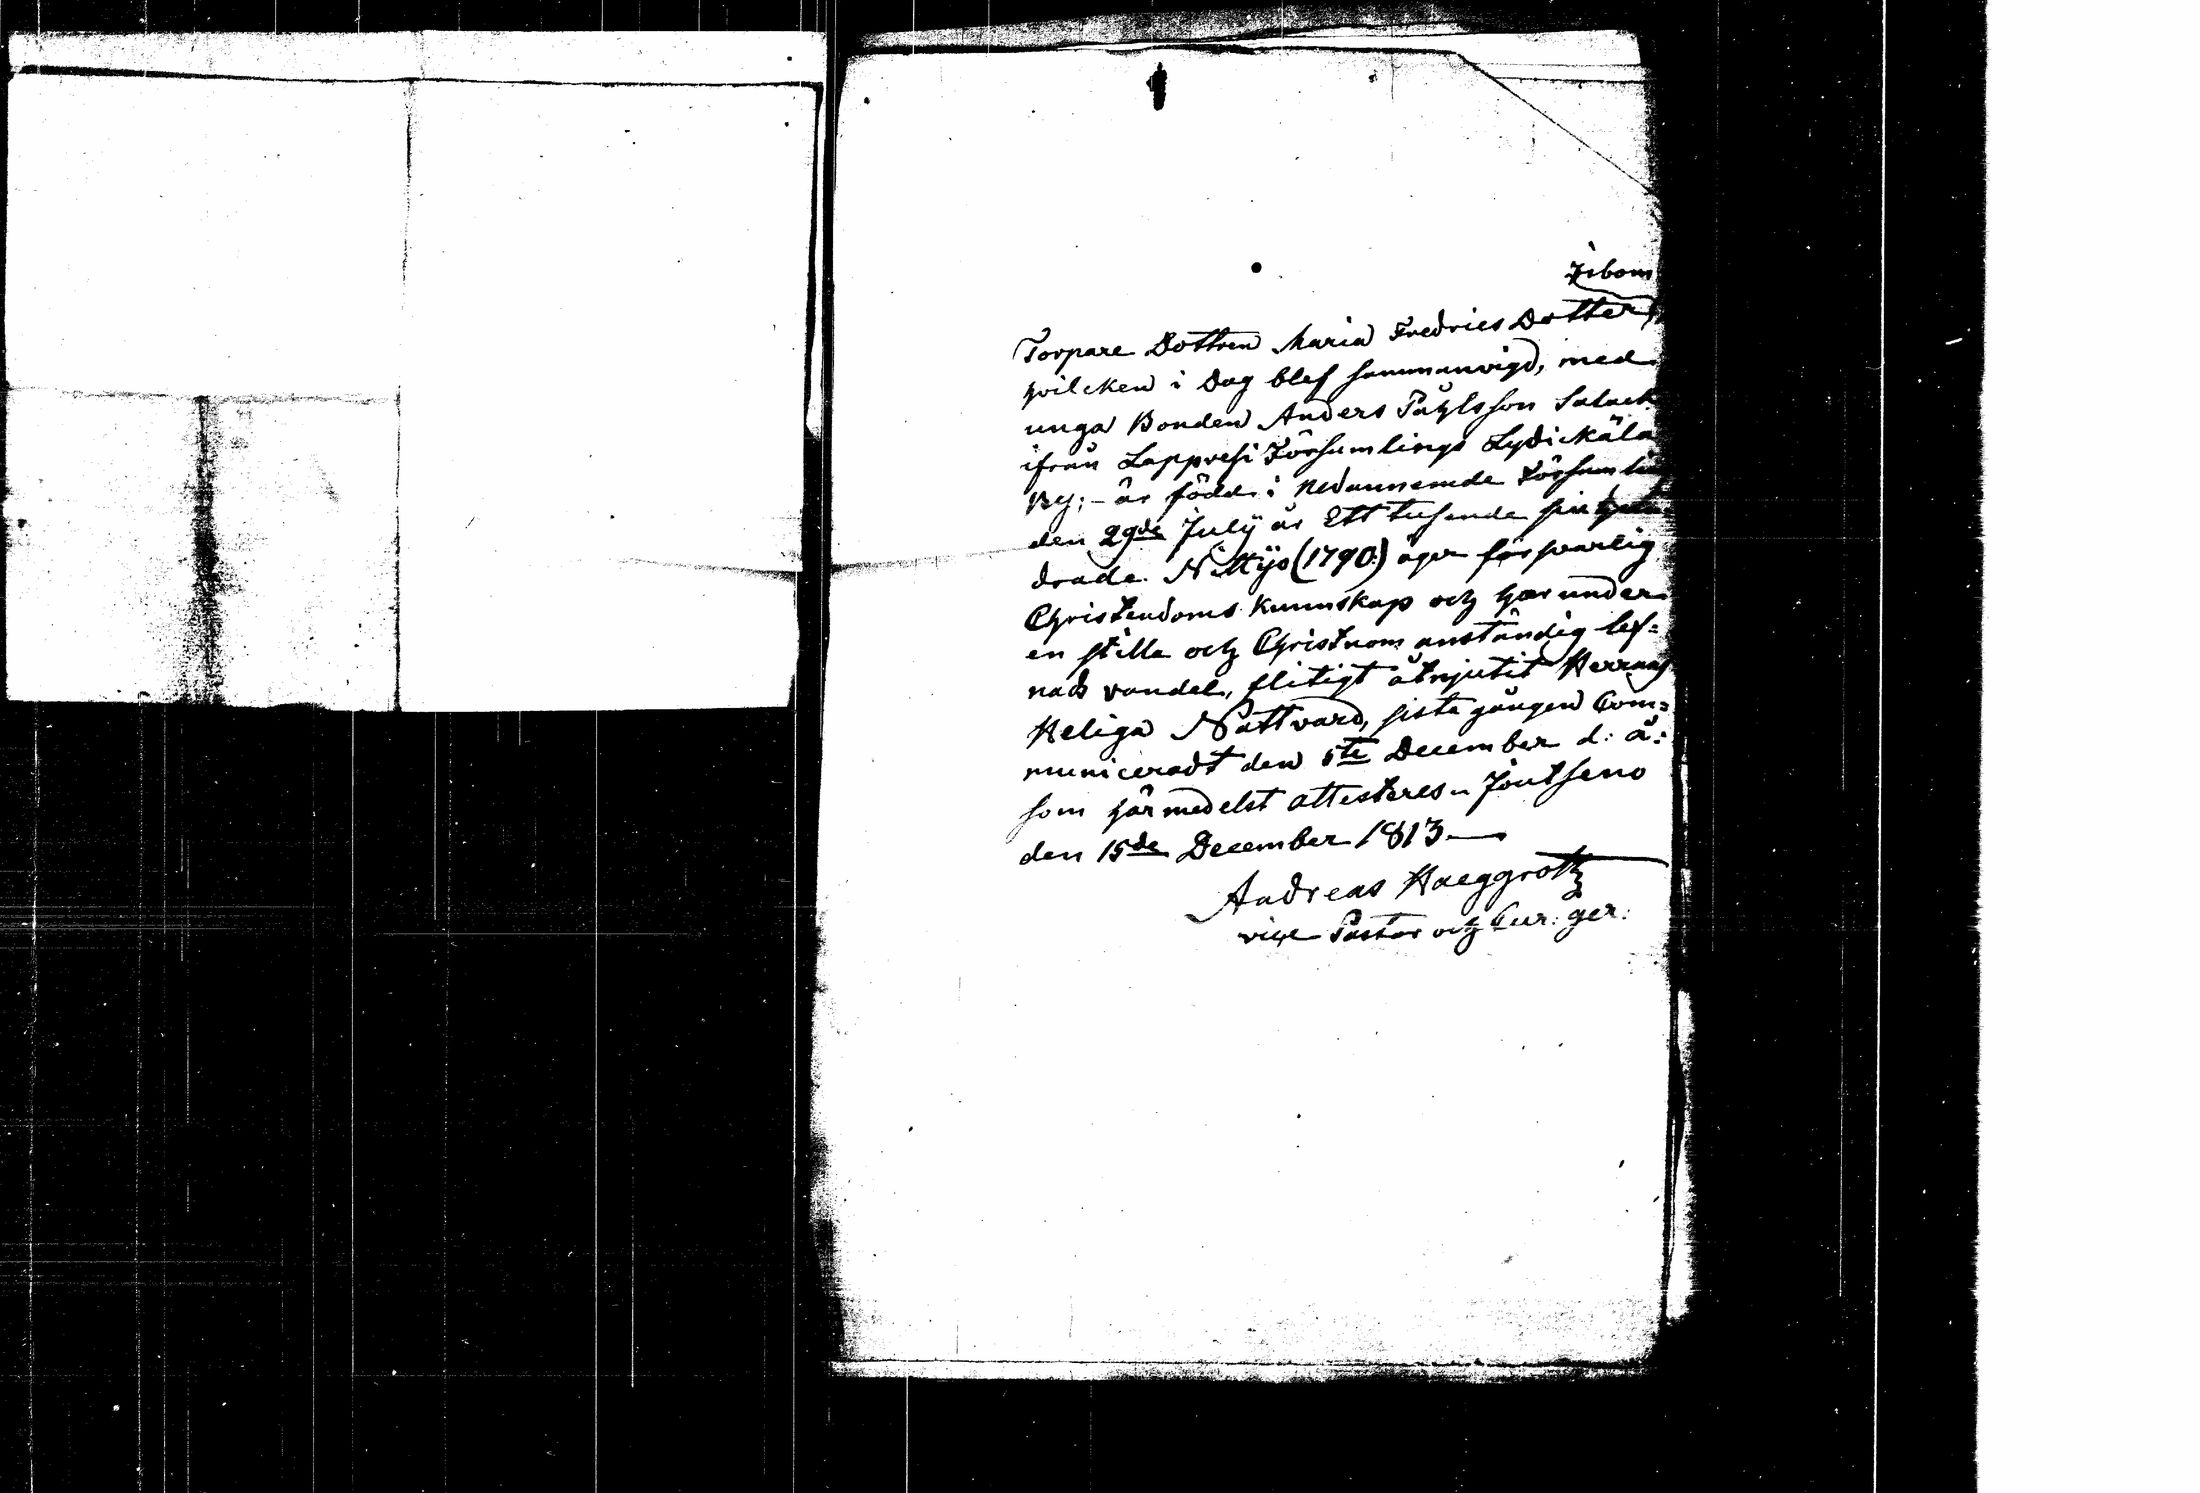 Torpare Dottren Maria Fredrics Dotter
hvilcken i Dag blef sammanvigd, med
unga Bonden Anders Påhlsson
ifrån Lappvesi Församlings
By; – är född i Nedannemde
den 29de July år Ett tusende
drade Nittijo (1790.) äger försvarlig
Christendoms kunnskap och har under
en stilla och Christnom anständig lef=
nads vandel, flitigt åtnjutit Herrans
Heliga Nattvard, sista gången Com=
municeradt den 5te December d: å:
som härmedelst attesteres. Joutseno
den 15de December 1813 —
Andreas Haeggroth
vice Pastor och Cur: ger: